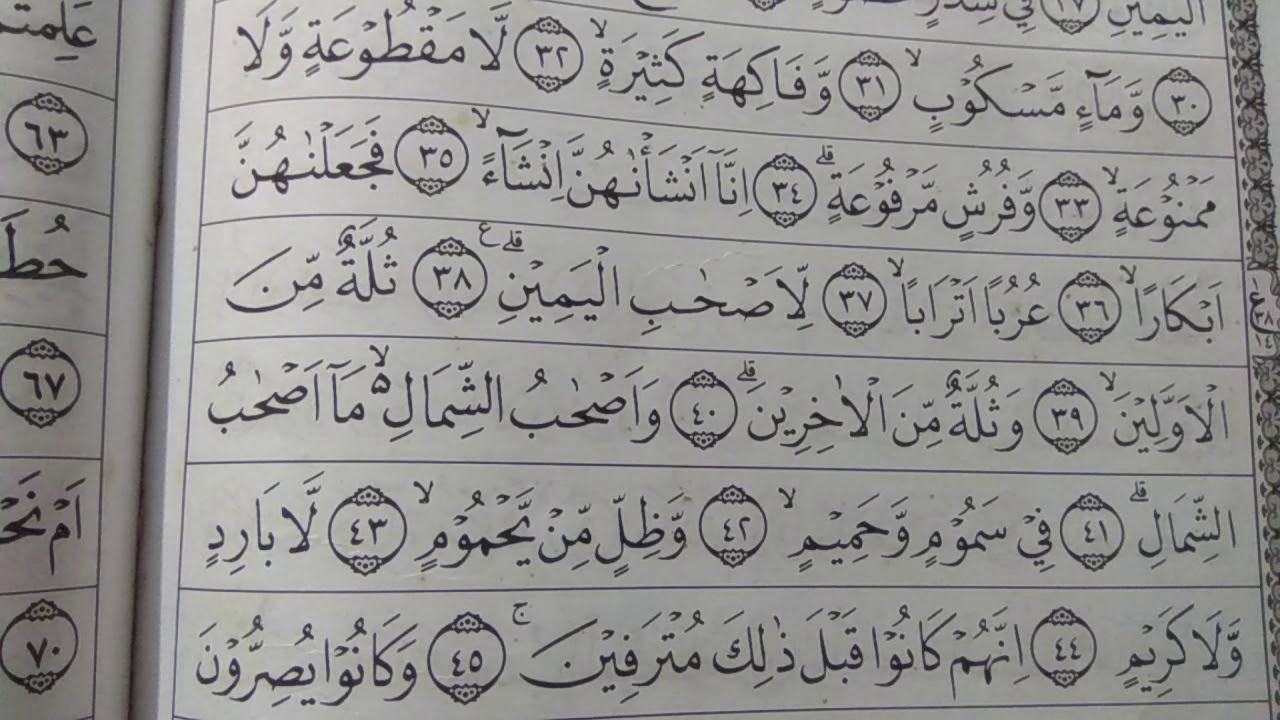 الْيَمِيْنِ ٢٧ فِيْ سِدْرٍ
٣٠ وَّمَآءٍ مَّسْكُوْبٍۙ ٣١ وَّفَاكِهَةٍ كَثِيْرَةٍۙ ٣٢ لَّا مَقْطُوْعَةٍ وَّلَا
مَمْنُوْعَةٍۙ ٣٣ وَّفُرُشٍ مَّرْفُوْعَةٍۗ ٣٤ اِنَّآ اَنْشَأْنٰهُنَّ اِنْشَآءًۙ ٣٥ فَجَعَلْنٰهُنَّ
اَبْكَارًاۙ ٣٦ عُرُبًا اَتْرَابًاۙ ٣٧ لِّاَصْحٰبِ الْيَمِيْنِۗ ࣖ ٣٨ ثُلَّةٌ مِّنَ
الْاَوَّلِيْنَۙ ٣٩ وَثُلَّةٌ مِّنَ الْاٰخِرِيْنَۗ ٤٠ وَاَصْحٰبُ الشِّمَالِ ەۙ مَآ اَصْحٰبُ
الشِّمَالِۗ ٤١ فِيْ سَمُوْمٍ وَّحَمِيْمٍۙ ٤٢ وَّظِلٍّ مِّنْ يَّحْمُوْمٍۙ ٤٣ لَّا بَارِدٍ
وَّلَا كَرِيْمٍ ٤٤ اِنَّهُمْ كَانُوْا قَبْلَ ذٰلِكَ مُتْرَفِيْنَۚ ٤٥ وَكَانُوْا يُصِرُّوْنَ
٦٣
٦٧
اَمْ نَحْ
٧٠